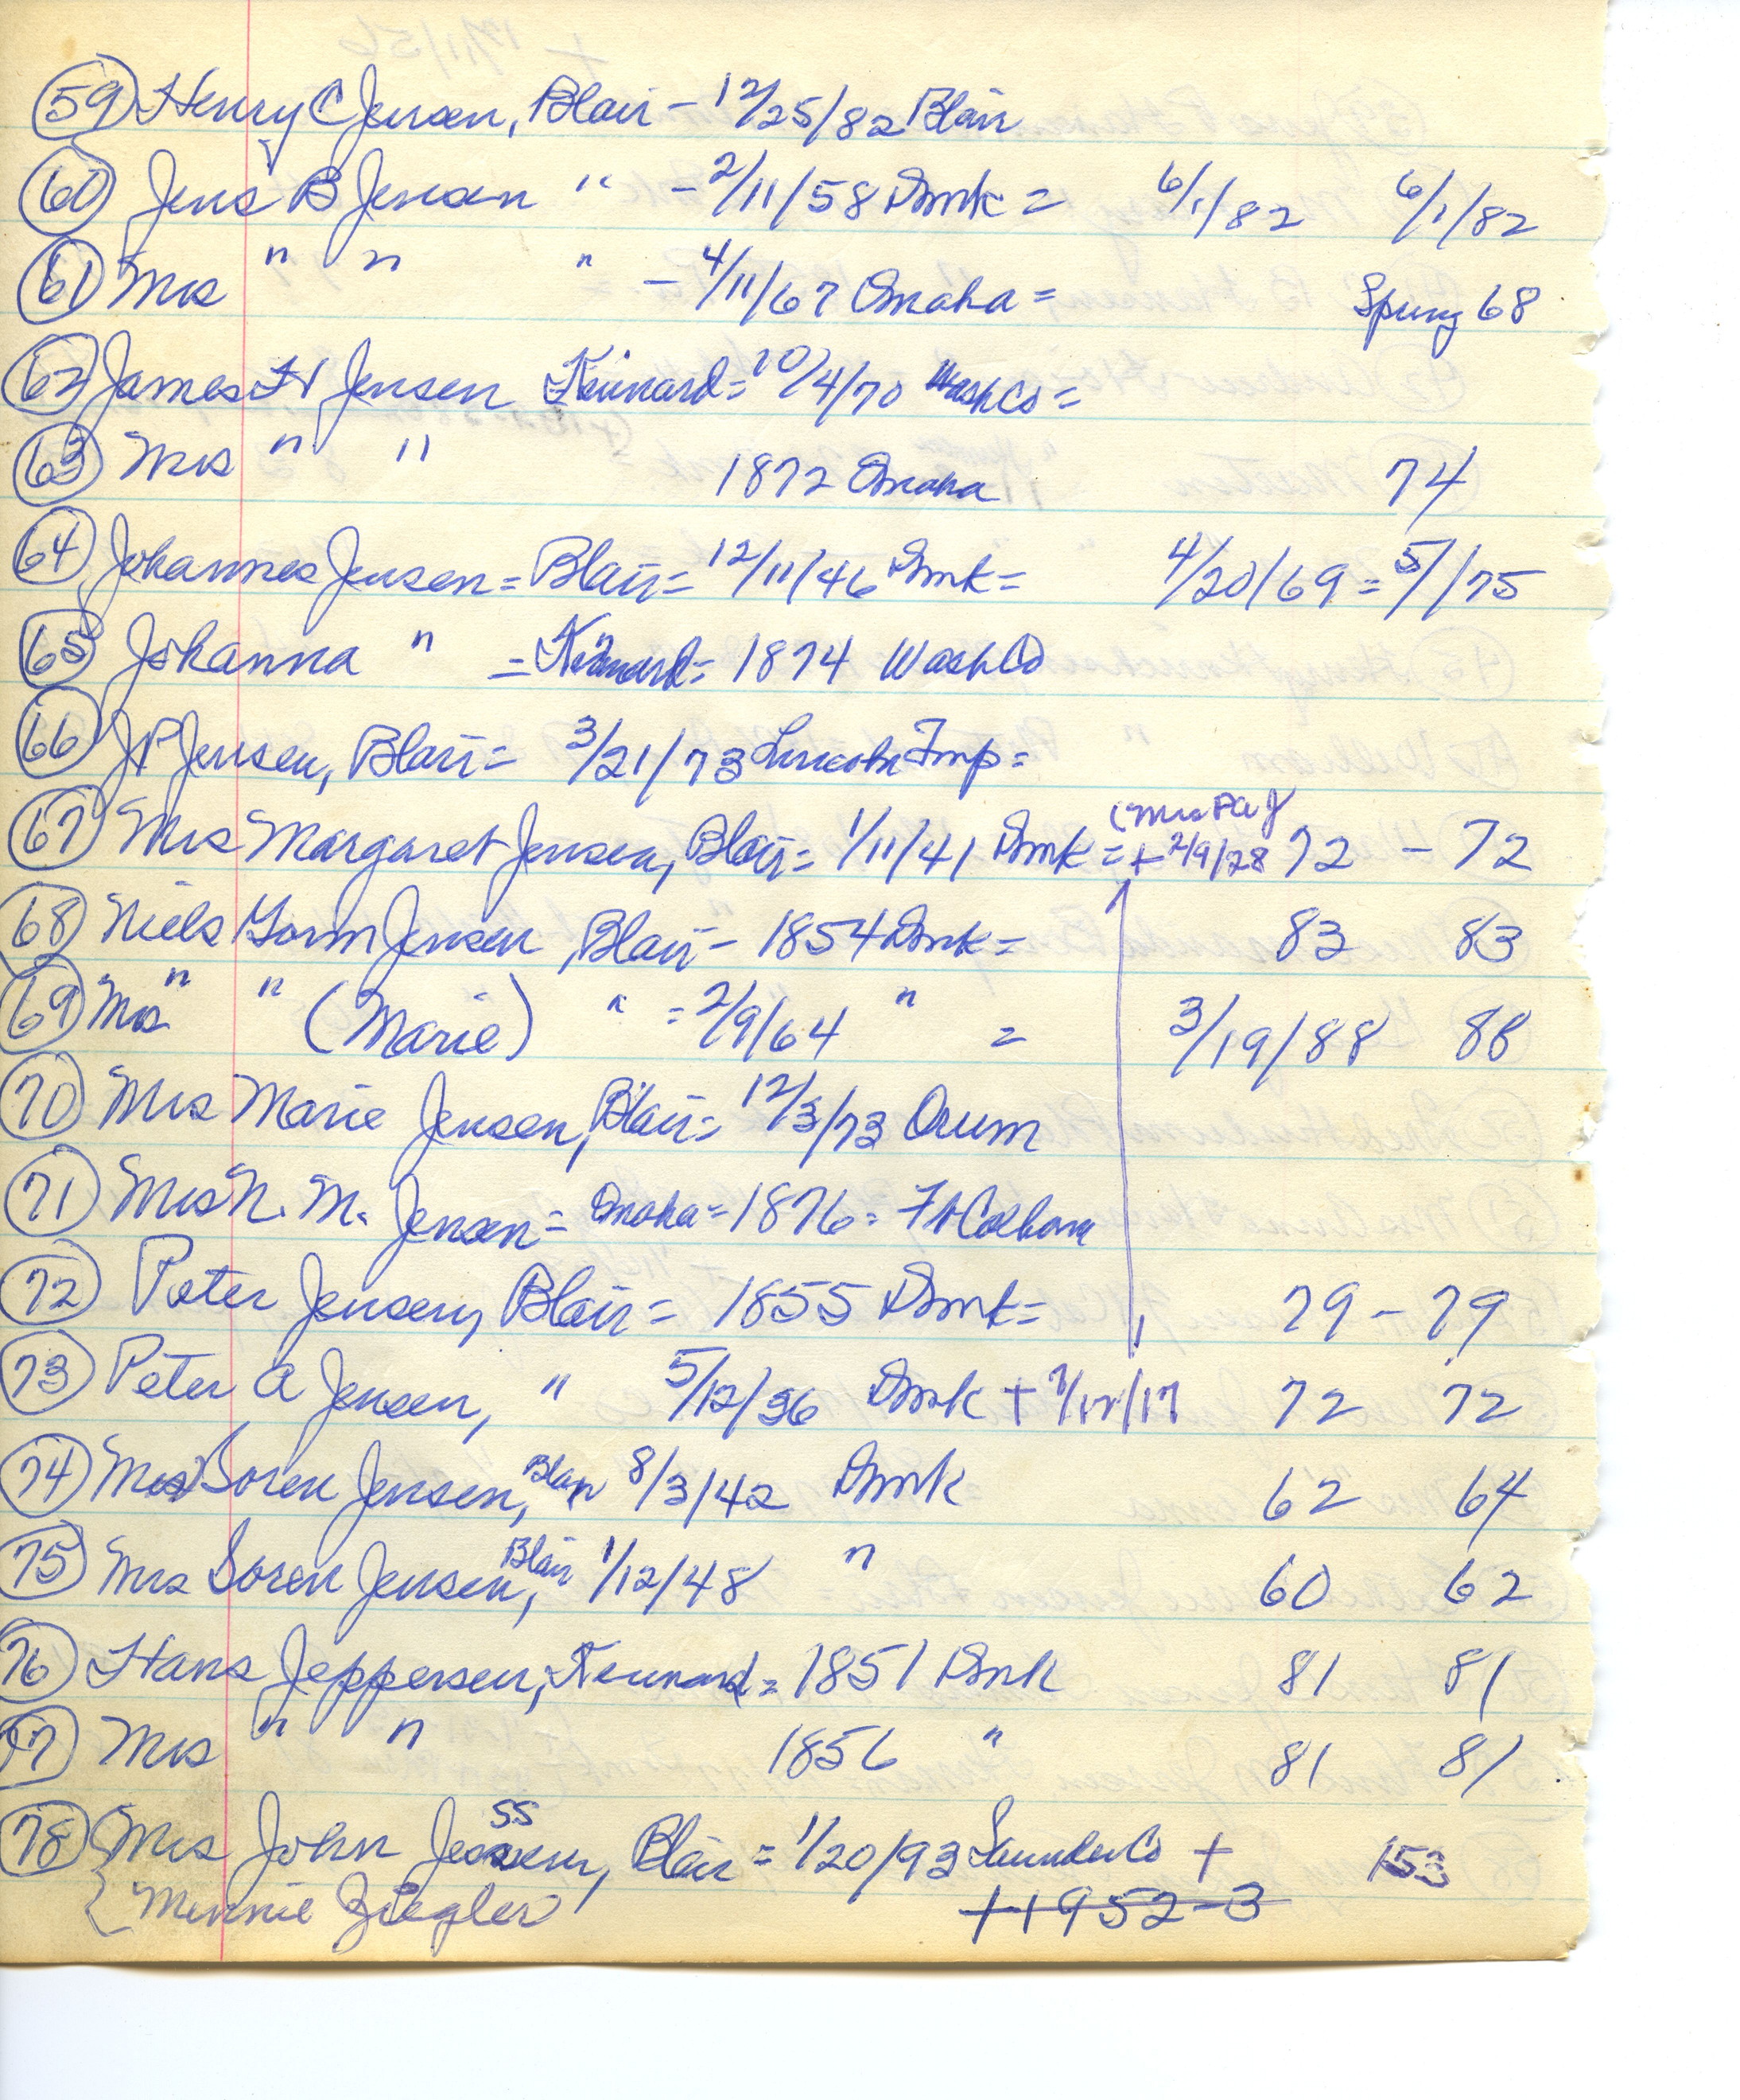 59 Henry C Jensen, Blair - 12/25/82 Blair
60 Jens B Jensen " - 2/11/58 Dmk = 6/1/82 6/1/82
61 Mrs " " " - 4/11/67 Omaha = Spring 68
62 James H Jensen Kennard = 10/4/70 Wash Co =
63 Mrs " " 1872 Omaha 74
64 Johannes Jensen = Blair = 12/11/46 Dmk = 4/20/69 = 5/1/75
65 Johanna " = Kennard = 1874 Wash Co
66 J P Jensen, Blair = 3/21/73 Lincoln Twp =
(Mrs PA J
67 Mrs Margaret Jensen, Blair = 1/11/41 Dmk = + 2/9/28 72 - 72
68 Niels Gorm Jensen, Blair - 1854 Dmk = 83 83
69 Mrs " " (Marie) " = 2/9/64 " = 3/19/88 88
70 Mrs Marie Jensen, Blair = 12/3/73 Orum
71 Mrs N. M. Jensen = Omaha = 1876 = Ft Calhoun
72 Peter Jensen, Blair = 1855 Dmk = 79 - 79
73 Peter A Jensen, " 5/12/36 Dmk + /17 72 72
74 Soren Jensen, Blair 8/3/42 Dmk 62 64
75 Mrs Soren Jensen, Blair 1/12/48 " 60 62
76 Hans Jeppersen, Kennard = 1851 Dmk 81 81
77 Mrs " " 1856 " 81 81
ss
78 Mrs John Jessen, Blair = 1/20/93 Saunder Co + 153
{ Minnie Ziegler + 1952-3